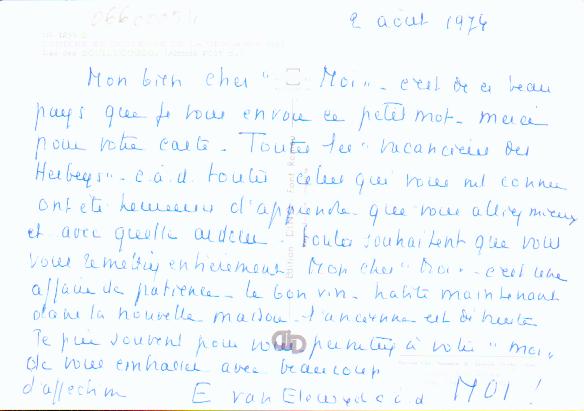 2 août 1974
Mon bien cher "Moi" - c'est de ce beau
pays que je vous envoie ce petit mot - merci
pour votre carte - Toutes les "vacanciers des
Herbeys" - c.à.d. toutes celles qui vous ont connu
ont été heureuses d'apprendre que vous alliez mieux
et avec quelle ardeur toutes souhaitent que vous
vous remettiez entièrement Mon cher "Moi" - c'est une
affaire de patience - le bon vin - habite maintenant
dans la nouvelle maison - l'ancienne est
Je prie souvent pour vous permettez à votre "moi"
de vous embrasser avec beaucoup
d'affection
E van MOI !